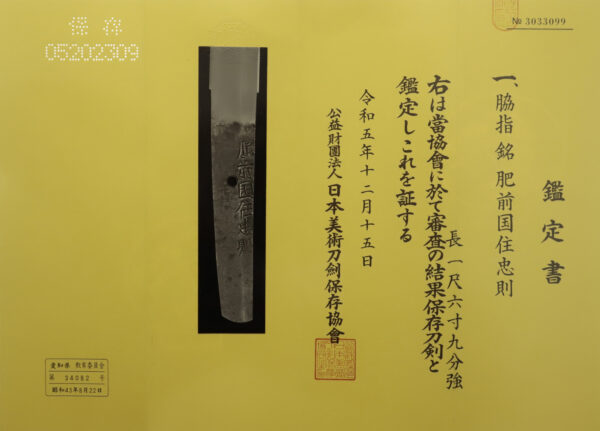 № 3033099
鑑定書
一、脇指 銘 肥前国住忠則
長一尺六寸九分強
右は當協會に於て審査の結果保存刀剣と
鑑定しこれを証する
令和五年十二月十五日
公益財團法人 日本美術刀劍保存協會
保存
05202309
肥前国住忠則
愛知県 教育委員会
第 34082 号
昭和43年8月22日